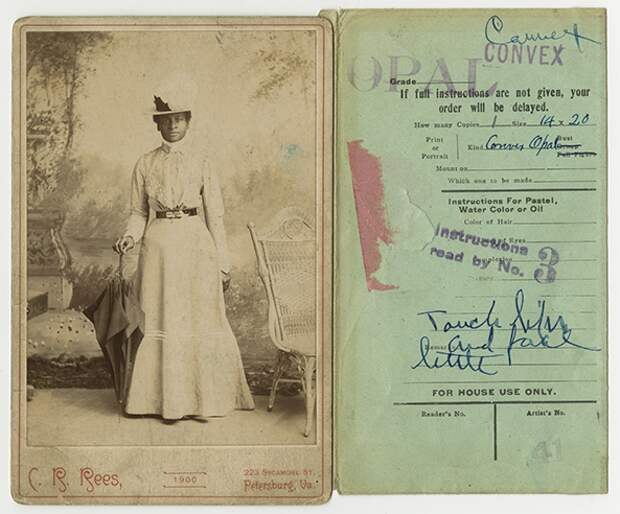 C. R. Rees,
1900
223 SYCAMORE ST.
Petersburg, Va.
Convex
CONVEX
OPAL
Grade
If full instructions are not given, your
order will be delayed.
How many Copies 1 Size 14 x 20
Print
or
Portrait
Kind Convex Opal
Bust
Full Figure
Mount on
Which one to be made
Instructions For Pastel,
Water Color or Oil
Color of Hair
Eyes
Instructions
read by No. 3
Touch
and face
little
FOR HOUSE USE ONLY.
Reader's No.
Artist's No.
41